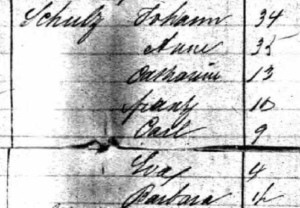 Schulz Johann 34
Anne 32
Catharine 13
Franz 10
Carl 9
Eva 4
Barbara